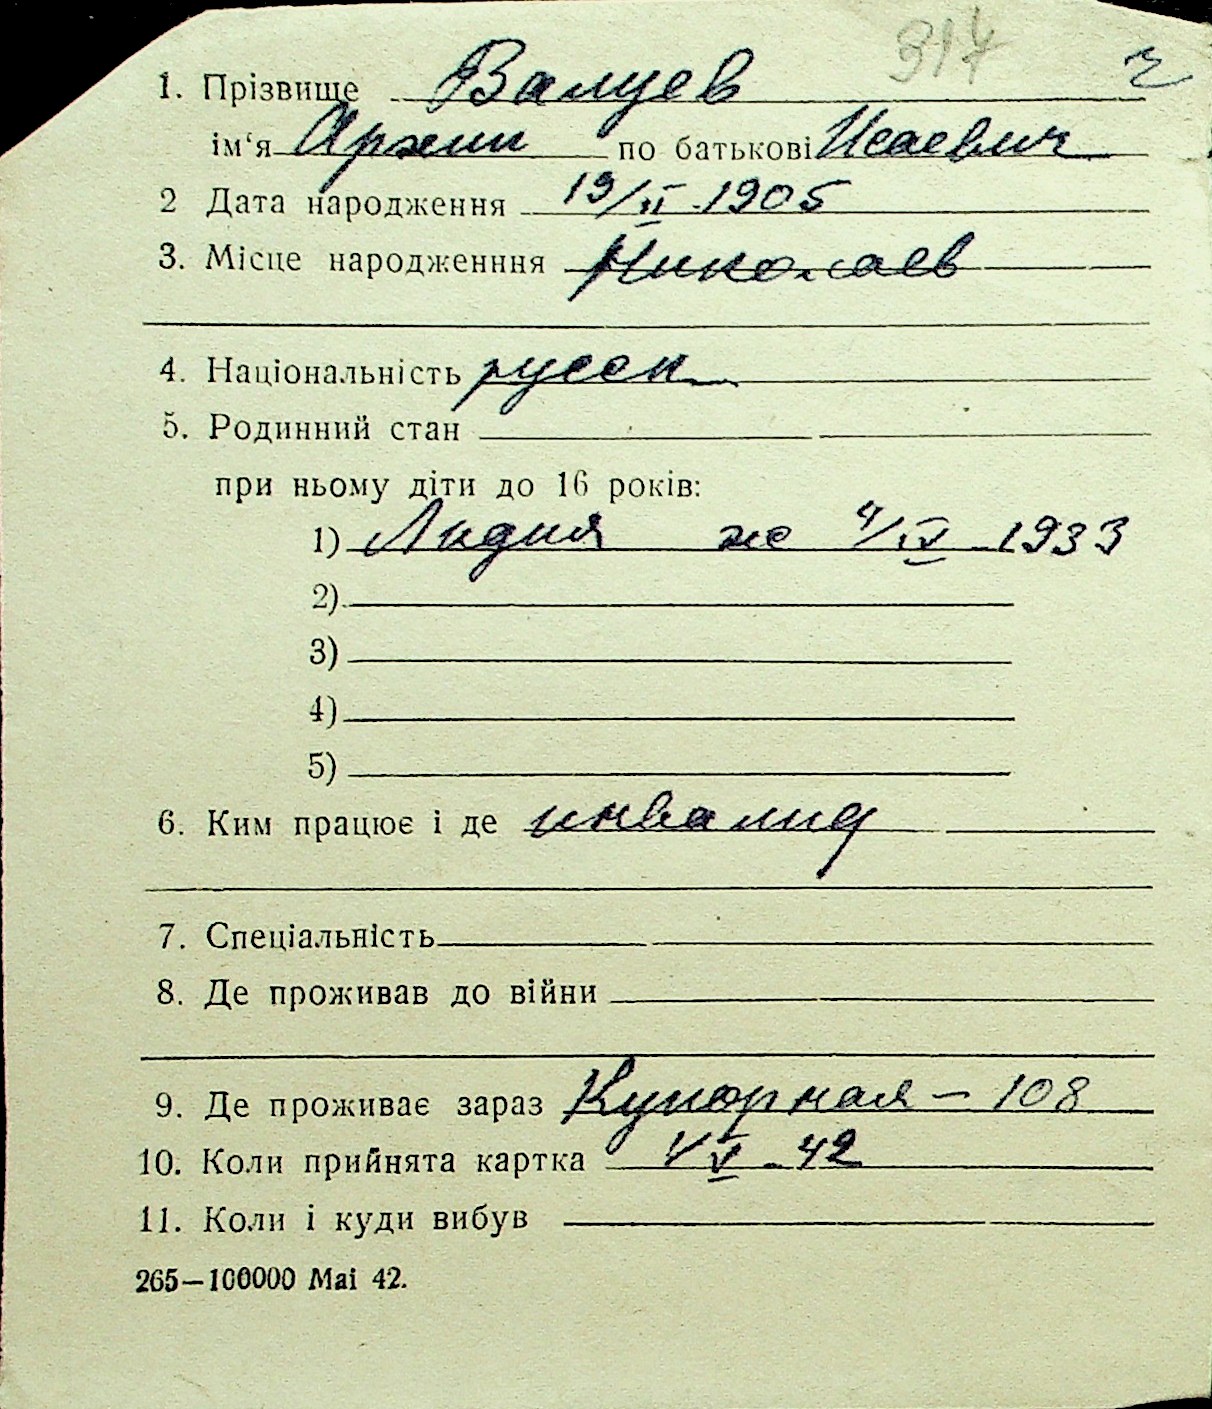 317 ч
1. Прізвище Валуев
ім‘я Архип по батькові Исаевич
2 Дата народження 19/II 1905
3. Місце народженння Николаев
4. Національність русск
5. Родинний стан
при ньому діти до 16 років:
1) Лидия же 4/IV 1933
2)
3)
4)
5)
6. Ким працює і де инвалид
7. Спеціальність
8. Де проживав до війни
9. Де проживає зараз Купорная – 108
10. Коли прийнята картка V 42
11. Коли і куди вибув
265—100000 Mai 42.